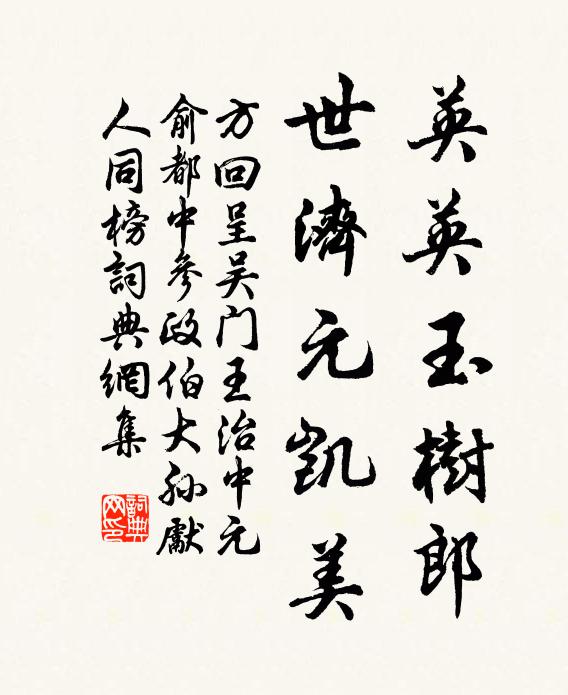 英英玉樹郎
世濟元凱美
方回呈吴门王治中元
俞都中參政伯大孙獻
人同榜詞典網集
詞典网印